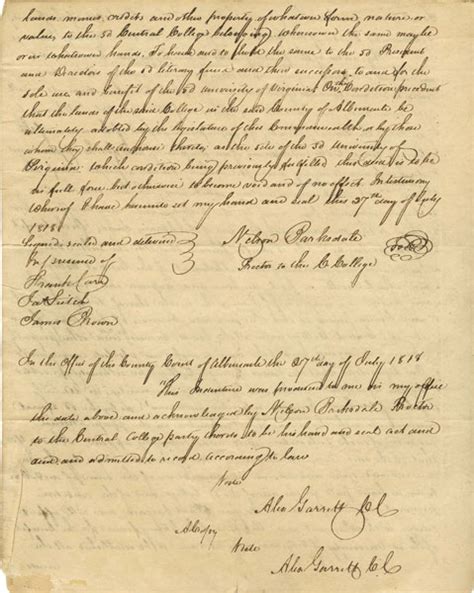 hands, monies, credits and other property of whatever form, nature, or
value, to the sd Central College belonging whereever the same may be
or in whatever hands. To have and to hold the same to the sd President
and Directors of the sd literary fund and their successors to and for the
sole use and benefit of the sd University of Virginia. On this Condition precedent
that the lands of the said College in the said County of Albemarle be
ultimately adopted by the legislature of this Commonwealth or by those
whom they shall authorise thereto as the site of the sd University of
Virginia which condition being previously fulfilled this deed is to be
in full force, but otherwise to become void and of no effect. In testimony
whereof I have hereunto set my hand and seal this 27th day of July
1818.
Signed sealed and delivered
In presence of
Frank Carr
James Brown
Nelson Barksdale
Proctor to the C. College
In the Office of the County Court of Albemarle the 27th day of July 1818
This Indenture was produced to me in my office
the date above and acknowledged by Nelson Barksdale Proctor
to the Central College party thereto to be his hand and seal act and
deed and admitted to record according to law
Teste
Alex Garrett CC
A Copy
Teste
Alex Garrett CC